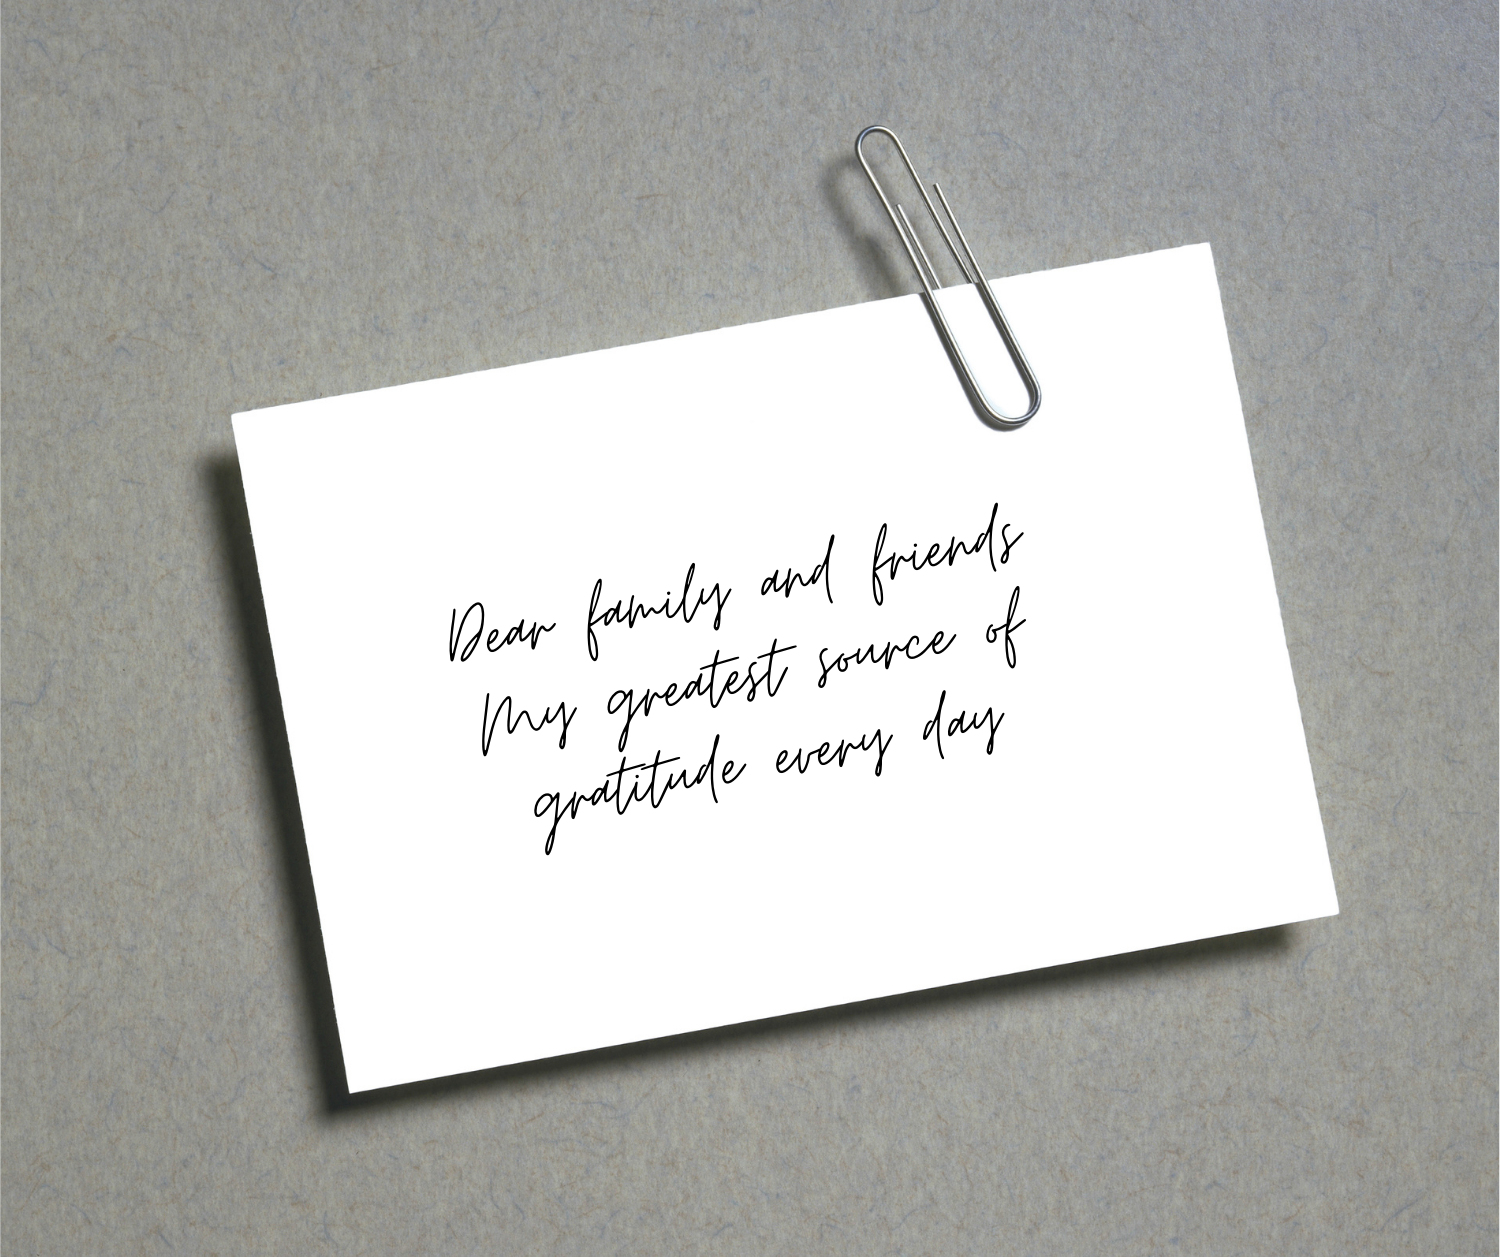 Dear family and friends
My greatest source of
gratitude every day